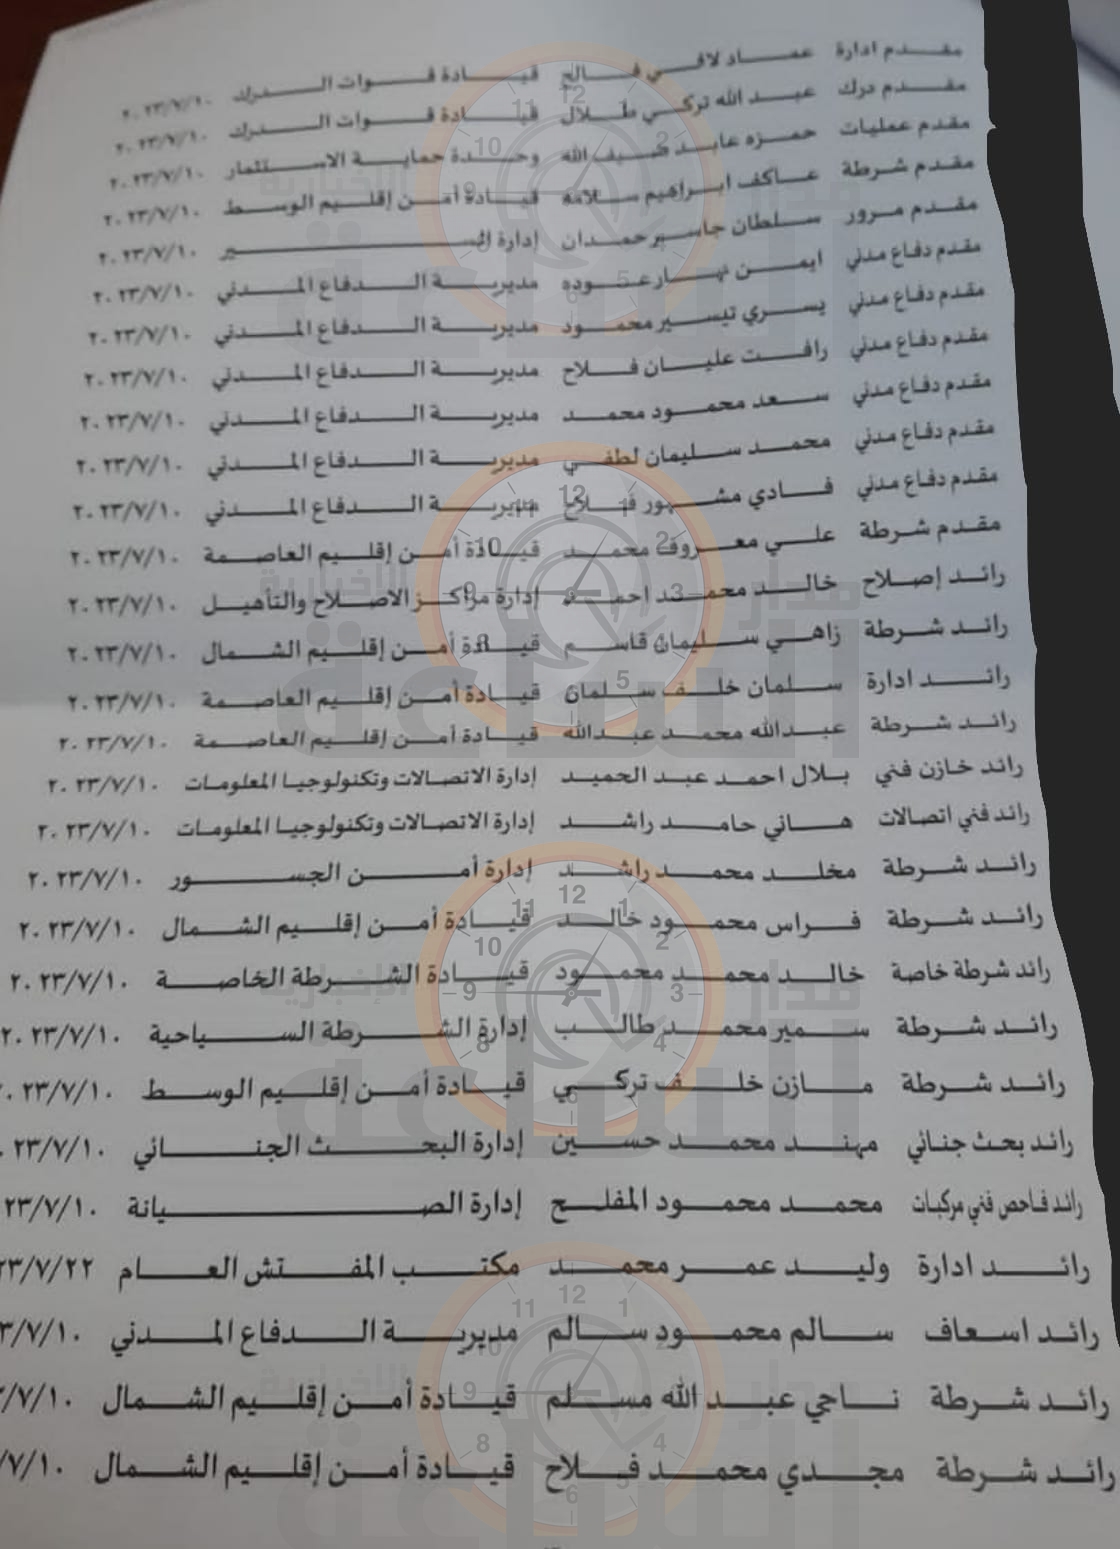 مقدم ادارة عماد لافي فالح قيادة قوات الدرك ٢٠٢٣/٧/١٠
مقدم درك عبد الله تركي طلال قيادة قوات الدرك ٢٠٢٣/٧/١٠
مقدم عمليات حمزه عابد ضيف الله وحدة حماية الاستثمار ٢٠٢٣/٧/١٠
مقدم شرطة عاكف ابراهيم سلامه قيادة أمن إقليم الوسط ٢٠٢٣/٧/١٠
مقدم مرور سلطان جاسر حمدان إدارة السير ٢٠٢٣/٧/١٠
مقدم دفاع مدني ايمن نهار عوده مديرية الدفاع المدني ٢٠٢٣/٧/١٠
مقدم دفاع مدني يسري تيسير محمود مديرية الدفاع المدني ٢٠٢٣/٧/١٠
مقدم دفاع مدني رافت عليان فلاح مديرية الدفاع المدني ٢٠٢٣/٧/١٠
مقدم دفاع مدني سعد محمود محمد مديرية الدفاع المدني ٢٠٢٣/٧/١٠
مقدم دفاع مدني محمد سليمان لطفي مديرية الدفاع المدني ٢٠٢٣/٧/١٠
مقدم دفاع مدني فادي مشهور فلاح مديرية الدفاع المدني ٢٠٢٣/٧/١٠
مقدم شرطة علي معروف محمد قيادة أمن إقليم العاصمة ٢٠٢٣/٧/١٠
رائد إصلاح خالد محمد احمد إدارة مراكز الاصلاح والتأهيل ٢٠٢٣/٧/١٠
رائد شرطة زاهي سليمان قاسم قيادة أمن إقليم الشمال ٢٠٢٣/٧/١٠
رائد ادارة سلمان خلف سلمان قيادة أمن إقليم العاصمة ٢٠٢٣/٧/١٠
رائد شرطة عبدالله محمد عبدالله قيادة أمن إقليم العاصمة ٢٠٢٣/٧/١٠
رائد خازن فني بلال احمد عبد الحميد إدارة الاتصالات وتكنولوجيا المعلومات ٢٠٢٣/٧/١٠
رائد فني اتصالات هاني حامد راشد إدارة الاتصالات وتكنولوجيا المعلومات ٢٠٢٣/٧/١٠
رائد شرطة مخلد محمد راشد إدارة أمن الجسور ٢٠٢٣/٧/١٠
رائد شرطة فراس محمود خالد قيادة أمن إقليم الشمال ٢٠٢٣/٧/١٠
رائد شرطة خاصة خالد محمد محمود قيادة الشرطة الخاصة ٢٠٢٣/٧/١٠
رائد شرطة سمير محمد طالب إدارة الشرطة السياحية ٢٠٢٣/٧/١٠
رائد شرطة مازن خلف تركي قيادة أمن إقليم الوسط ٠٢٣/٧/١٠
رائد بحث جنائي مهند محمد حسين إدارة البحث الجنائي ٠٢٣/٧/١٠
رائد فاحص فني مركبات محمد محمود المفلح إدارة الصيانة ٢٣/٧/١٠
رائد ادارة وليد عمر محمد مكتب المفتش العام ٢٣/٧/٢٢
رائد اسعاف سالم محمود سالم مديرية الدفاع المدني ٣/٧/١٠
رائد شرطة ناجي عبد الله مسلم قيادة أمن إقليم الشمال /٧/١٠
رائد شرطة مجدي محمد فلاح قيادة أمن إقليم الشمال /٧/١٠